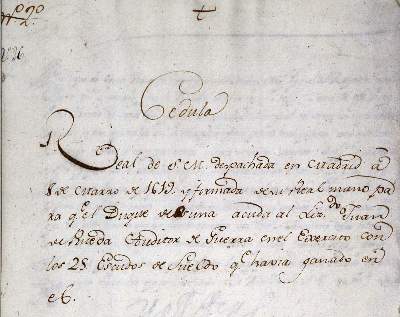 Nº 90
Cedula
Real de S M. despachada en Madrid à
8 de Marzo de 1619 y firmada de su Real mano pa
ra q.e el Duque de Osuna acuda al Liz.do Juan
de Rueda Auditor de Guerra en el Exercito con
los 25 Escudos de Sueldo q.e havia ganado en
el.